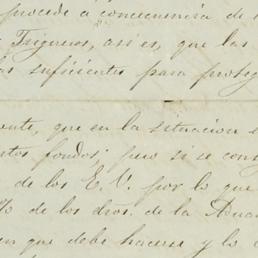 procede á concecuencia de l
Trigueros, así es, que las
suficientes para proteg
ente, que en la situacion e
tos fondos; pero si se con
de los E. V. por lo que
% de los dros. de la Adua
en que debe hacerse y lo